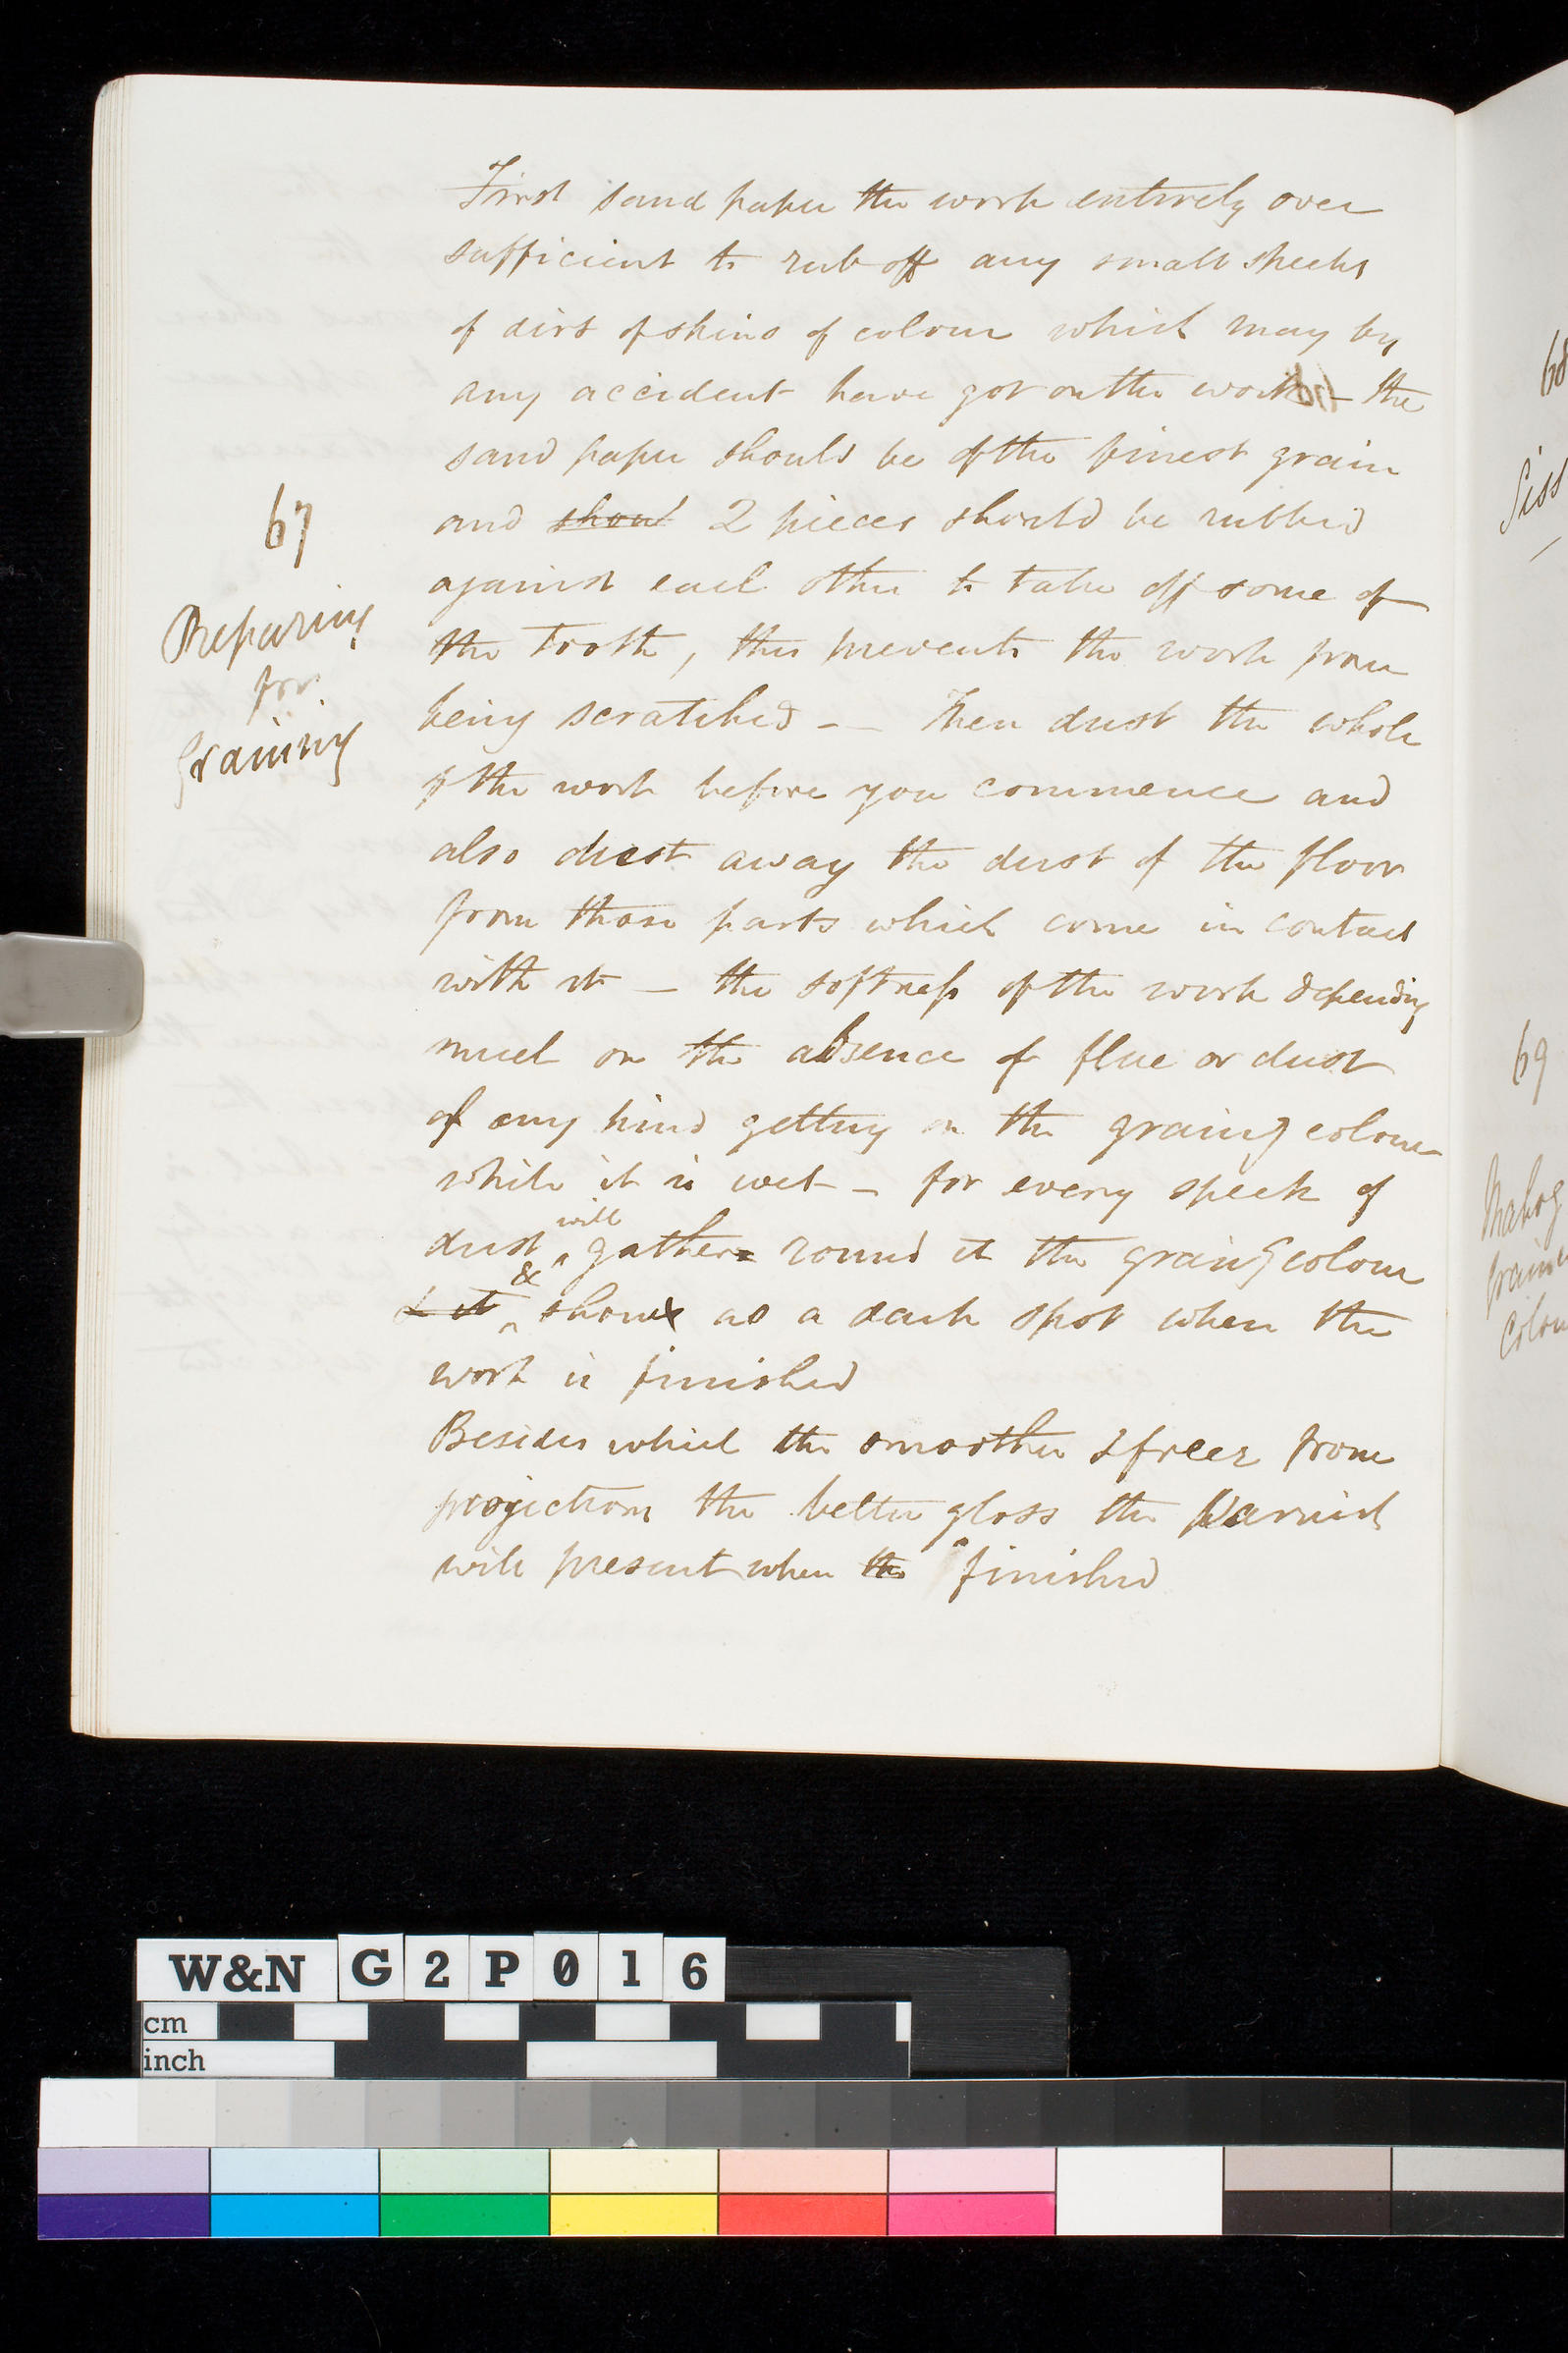 67
Preparing
for
Graining
First sand paper the work entirely over
sufficient to rub off any small specks
of dirt of skins of colour which may by
any accident have got on the work – the
sand paper should be of the finest grain
and shoul 2 pieces should be rubbed
against each other to take off some of
the tooth, this prevents the work from
being scratched – – Then dust the whole
of the work before you commence and
also dust away the dust of the floor
from those parts which come in contact
with it – the softness of the work depending
much on the absence of flue or dust
of any kind getting on the graing colour
while it is wet – for every speck of
dust will gather round it the graing colour
& it & show as a dark spot when the
work is finished
Besides which the smoother & freer from
projections the better gloss the Varnish
will present when the finished
68
Siss
69
Mahog
Graini
Colou
W&N G2P016
cm
inch